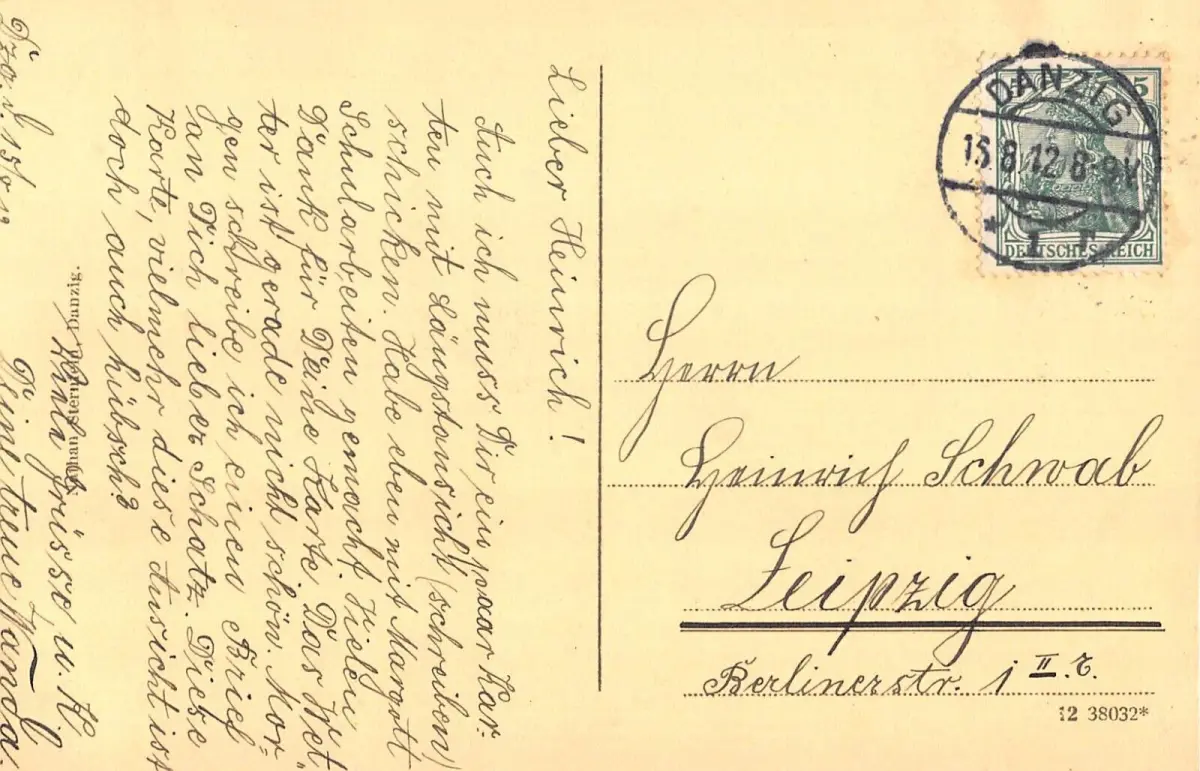 Dzg. d. 15/8 12
Lieber Heinrich!
Auch ich muss Dir ein paar Kar-
ten mit Längstansicht (schreiben)
schicken. Habe eben mit Margott
Schularbeiten gemacht. Vielen
Dank für Deine Karte. Das Wet-
ter ist gerade nicht schön. Mor-
gen schreibe ich einen Brief
an Dich lieber Schatz. Diese
Karte, vielmehr diese Ansicht ist
doch auch hübsch?
Grüsse u. K.
Deine treue Wanda.
Stern, Danzig.
DANZIG
15.8.12.8-9V
* 1 r
5 5
DEUTSCHES REICH
Herrn
Heinrich Schwab
Leipzig
Berlinerstr. 1 II. r.
12 38032*